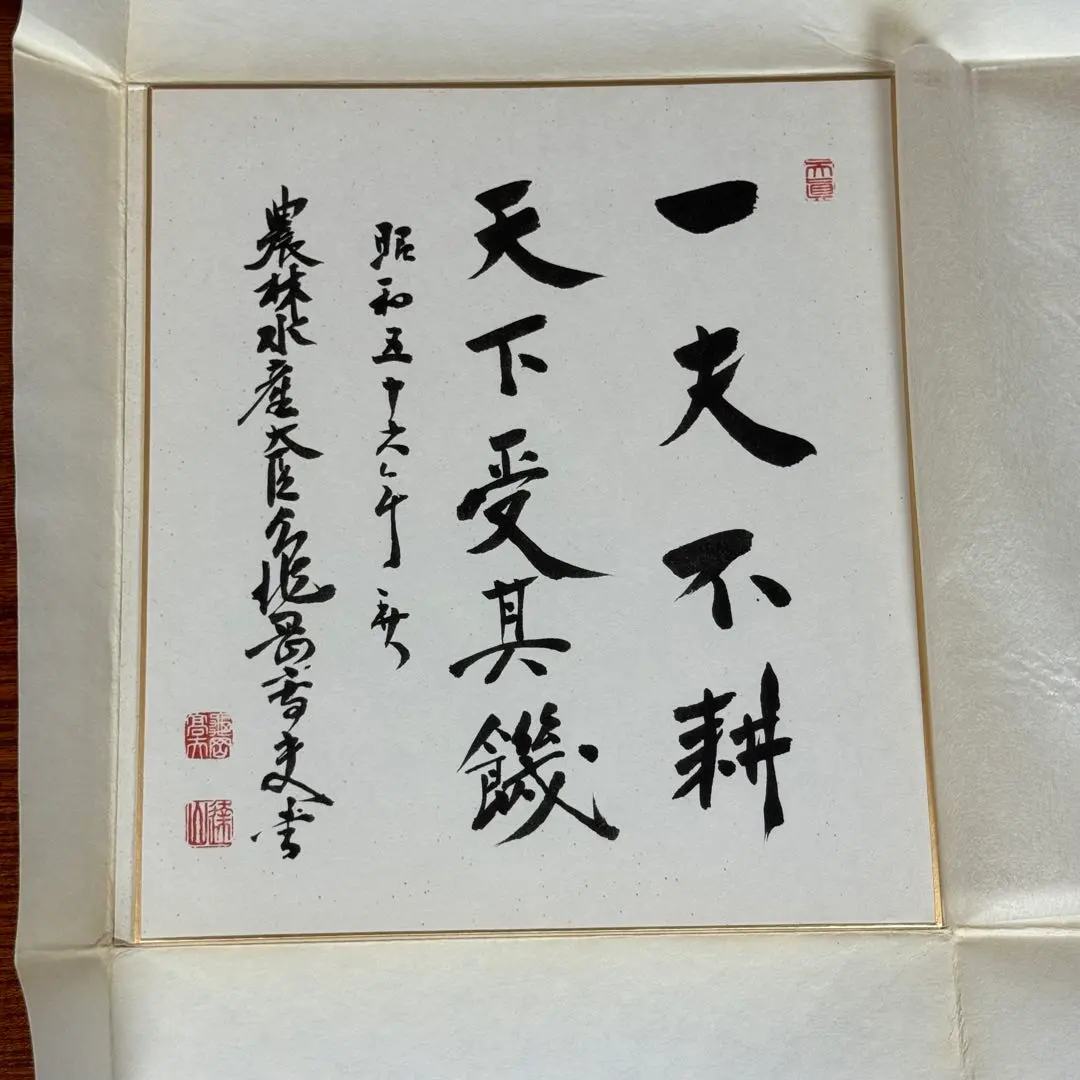 天眞
一夫不耕
天下受其饑
昭和五十六年
農林水産大臣亀岡高夫書